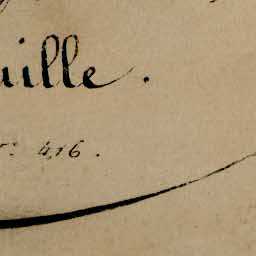 uille.
r.° 416.